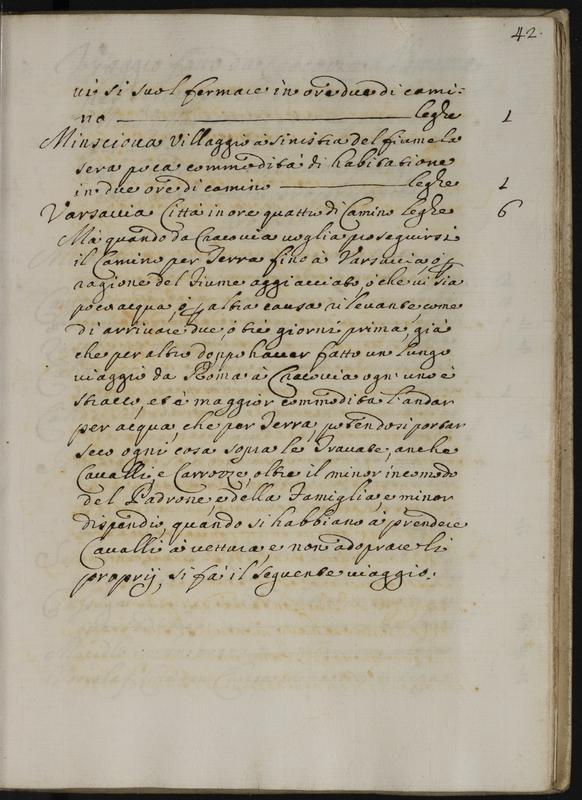 42.
vi si suol fermare in ore due di cami=
no ——— leghe 1
Minsciova Villaggio à sinistra del fiume la
sera poca commodità di habitatione
in due ore di camino ——— leghe 1
Varsavia Città in ore quattro di Camino leghe 6
Mà quando da Cracovia voglia proseguirsi
il Camino per Terra fino à Varsavia, ò p
ragione del Fiume aggiacciato, ò che vi sia
poca acqua, ò p altra causa rilevante, come
di arrivare due, ò trè giorni prima, già
che per altro doppo haver fatto un lungo
viaggio da Roma à Cracovia ogn' uno è
stracco, et è maggior commodità l'andar
per acqua, che per Terra, potendosi portar
seco ogni cosa sopra le Travate, anche
Cavalli, e Carrozze, oltre il minor incomodo
del Padrone, e della Famiglia, e minor
dispendio, quando si habbiano à prendere
Cavalli à vettura, e non adoprare li
proprij, si fà il seguente viaggio.